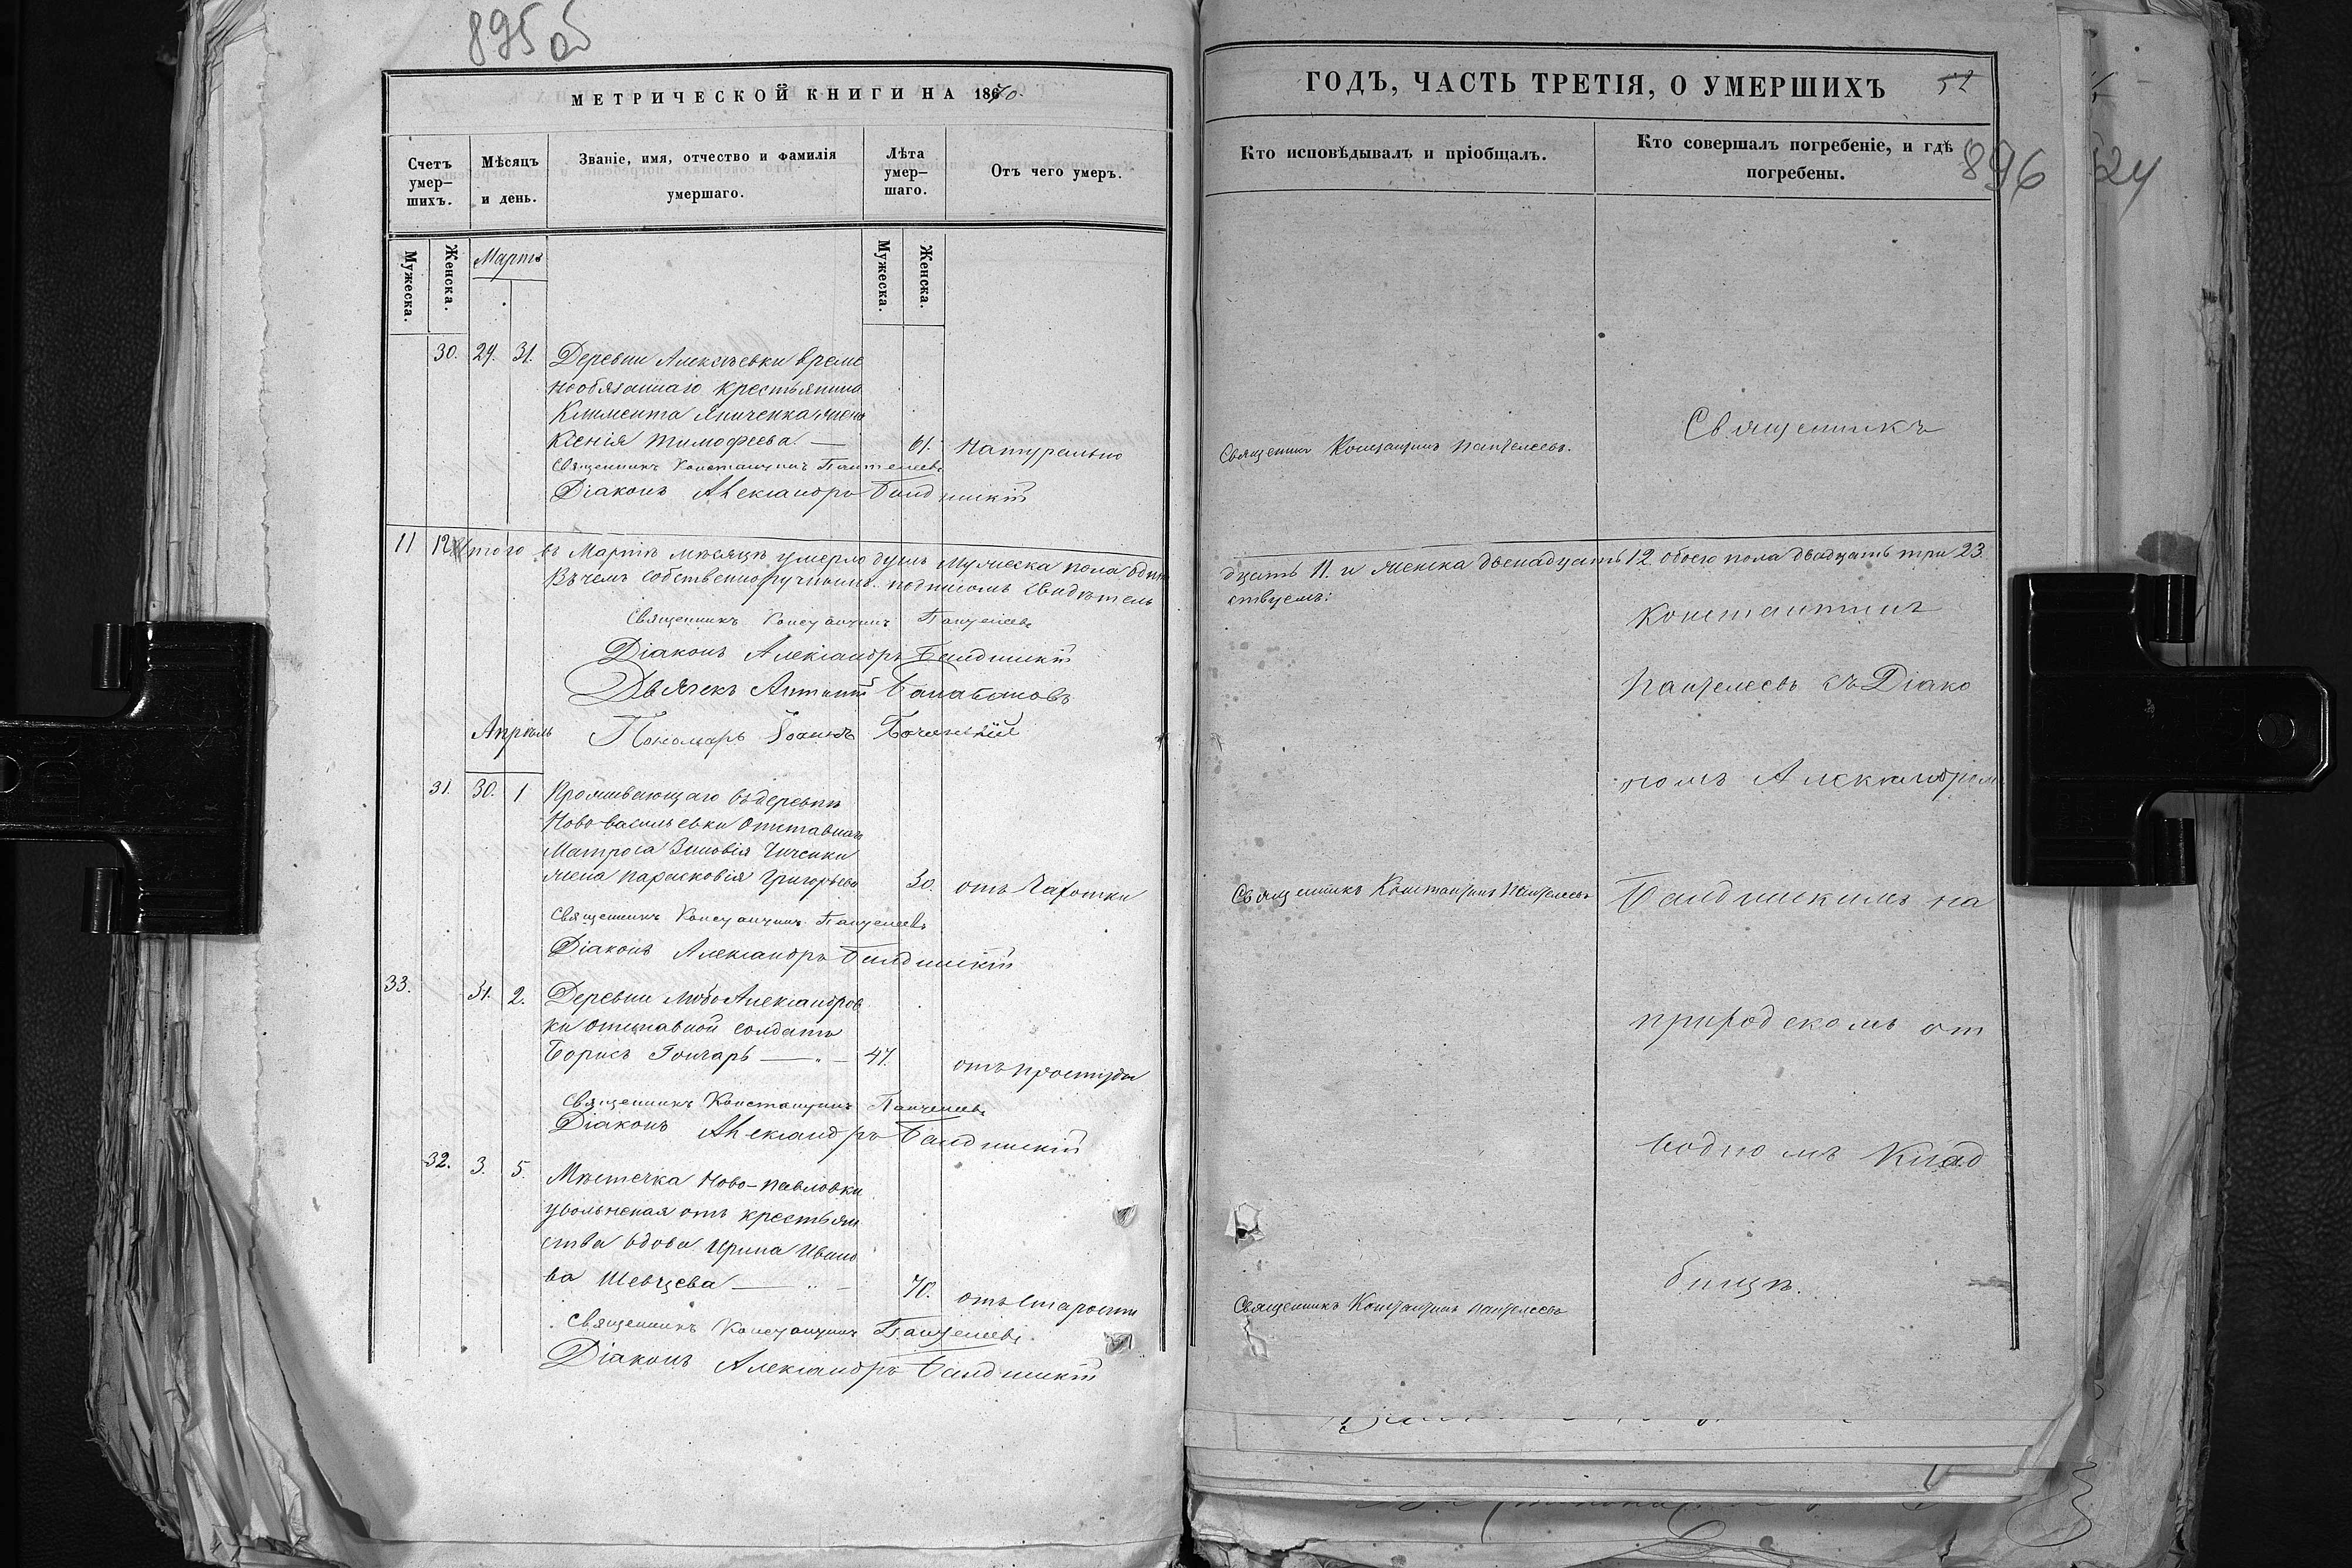 895об
МЕТРИЧЕСКОЙ КНИГИ НА 1870
Счетъ умер-шихъ.
Мѣсяцъ и день.
Званіе, имя, отчество и фамилія умершаго.
Лѣта умер-шаго.
Отъ чего умеръ.
Мужеска.
Женска.
Мартъ
Мужеска.
Женска.
30. 29. 31. Деревни Алексѣевки време
нообязаннаго крестьянина
Климента Яниченка жена
Ксенія Тимофеева. — 61. Натурально
Священникъ Константинъ Пантелеевъ
Діаконъ Александръ
11 12 Итого въ Мартѣ мѣсяцѣ умерло душъ мужеска пола один
Въ чемъ собственноручнымъ подписомъ свидѣтель
Священникъ Константинъ Пантелеевъ
Діаконъ Александръ
Дьячекъ Антоній Балабановъ
Апрѣль Пономарь Іоаннъ
31. 30. 1 Проживающаго въ деревнѣ
Ново-васильевки отставнаго
Матроса Зиновія Чиченки
жена Парасковія Григорьева 30. отъ Чахотки
Священникъ Константинъ Пантелеевъ
Діаконъ Александръ
33. 31. 2. Деревни Любоалександров
ки отставной солдатъ
Борисъ Гончаръ — „ — 47. отъ простуды
Священникъ Константинъ Пантелеевъ
Діаконъ Александръ
32. 3. 5. Мѣстечка Ново-павловки
увольненая отъ крестьян
ства вдова Ирина Ивано
ва Шевцева — 70. отъ Старости
Священникъ Константинъ Пантелеевъ
Діаконъ Александръ
ГОДЪ, ЧАСТЬ ТРЕТІЯ, О УМЕРШИХЪ 52
Кто исповѣдывалъ и пріобщалъ.
Кто совершалъ погребеніе, и гдѣ погребены.
896
24
Священникъ
Священникъ Константинъ Пантелеевъ.
дцать 11. и женска двенадцать 12 обоего пола двадцать три 23.
ствуемъ:
Константинъ
Пантелеевъ съ Діако
номъ Александромъ
Священникъ Константинъ Пантелеевъ
на
приходскомъ от
водномъ Клад
бищѣ.
Священникъ Константинъ Пантелеевъ